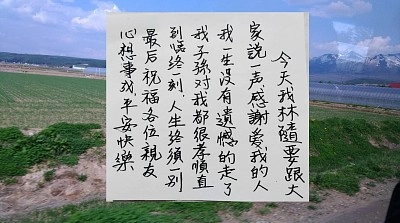 今天我林隨要跟大
家說一声感謝爱我的人
我一生没有遺憾的走了
我子孫对我都很孝順直
到临终一刻人生终須一别
最后祝福各位親友
心想事成平安快樂